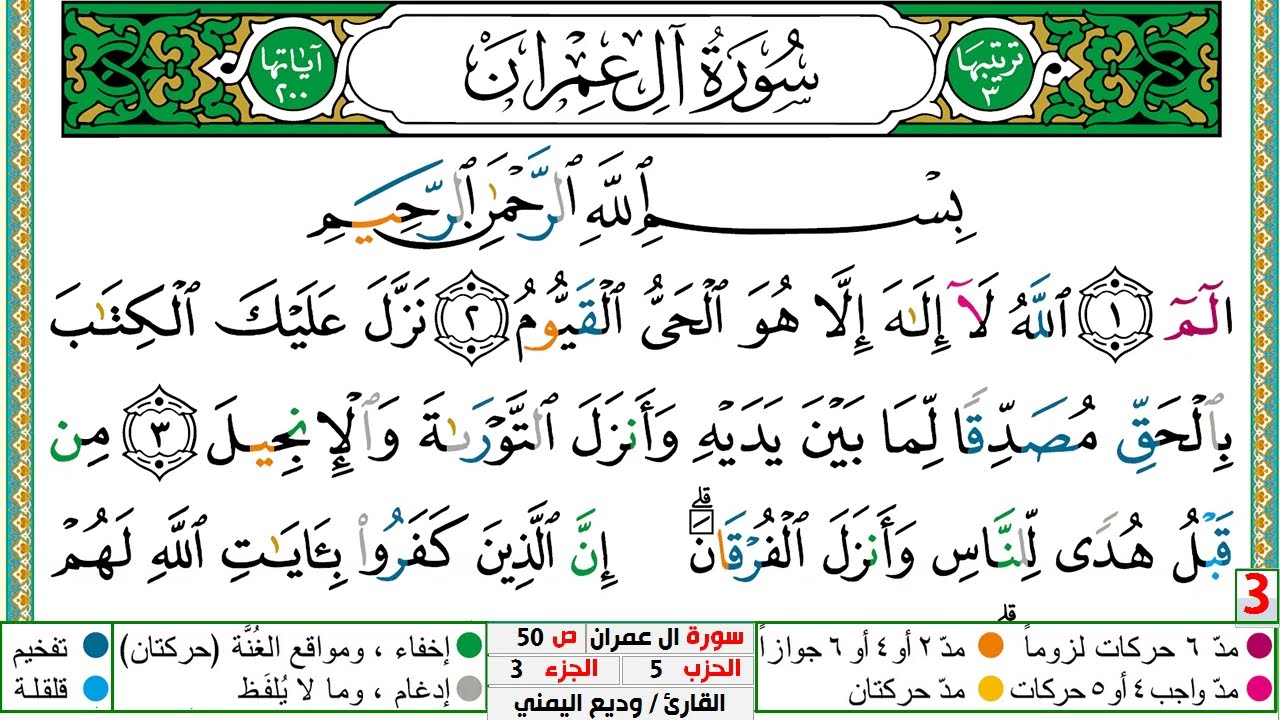 ترتيبها ٣
سُورَةُ آلِ عِمْرَانَ
آيَاتُها ٢٠٠
بِسْمِ ٱللَّهِ ٱلرَّحْمَٰنِ ٱلرَّحِيمِ
الٓمٓ ١ ٱللَّهُ لَآ إِلَٰهَ إِلَّا هُوَ ٱلْحَىُّ ٱلْقَيُّومُ ٢ نَزَّلَ عَلَيْكَ ٱلْكِتَٰبَ
بِٱلْحَقِّ مُصَدِّقًا لِّمَا بَيْنَ يَدَيْهِ وَأَنزَلَ ٱلتَّوْرَىٰةَ وَٱلْإِنجِيلَ ٣ مِن
قَبْلُ هُدًى لِّلنَّاسِ وَأَنزَلَ ٱلْفُرْقَانَ ۗ إِنَّ ٱلَّذِينَ كَفَرُوا۟ بِـَٔايَٰتِ ٱللَّهِ لَهُمْ
3
مدّ ٦ حركات لزوماً
مدّ ٢ أو ٤ أو ٦ جوازاً
مدّ واجب ٤ أو ٥ حركات
مدّ حركتان
سورة ال عمران ص 50
الحزب 5 الجزء 3
القارئ / وديع اليمني
إخفاء ، ومواقع الغُنَّة (حركتان)
إدغام ، وما لا يُلفَظ
تفخيم
قلقلة